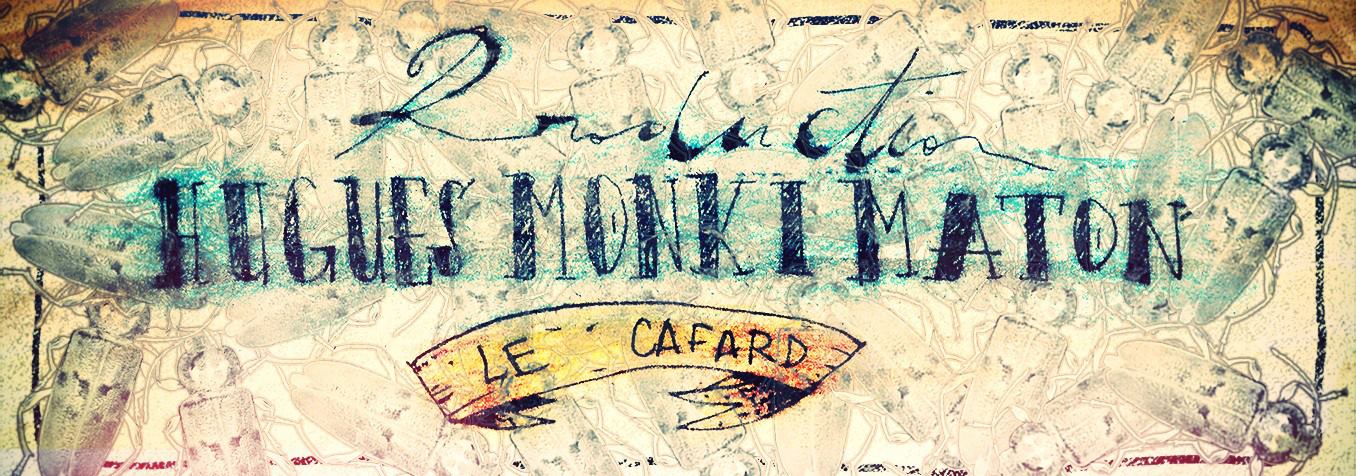 Production
HUGUES MONKI MATON
LE CAFARD